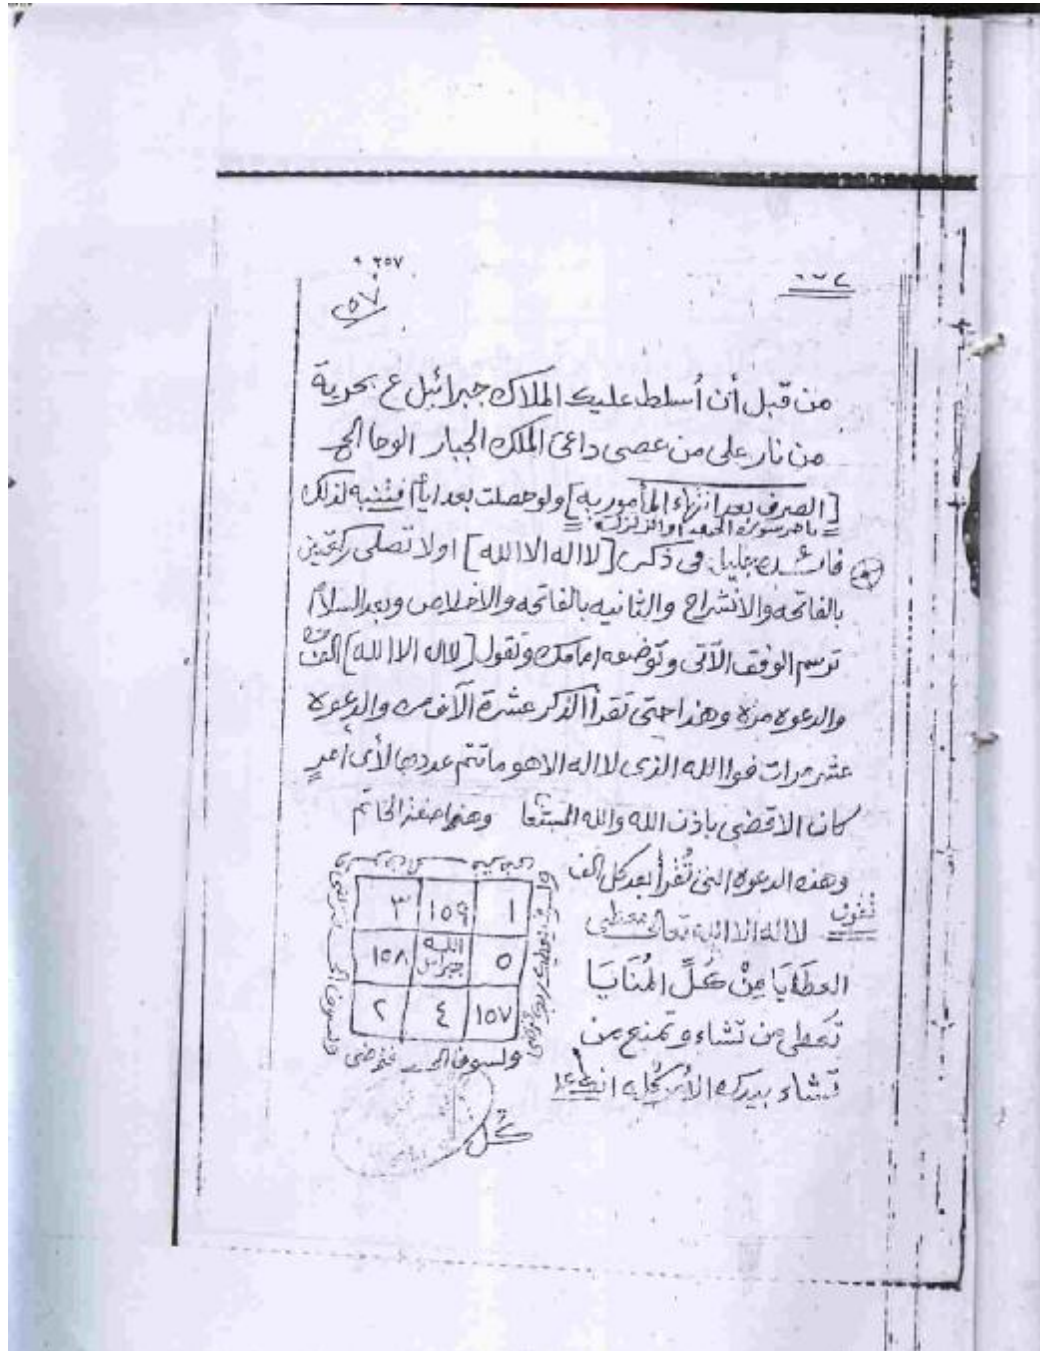 ٩ ٢٥٧
٢٥٧
من قبل أن أسلط عليك الملاك جبرائيل ع بحربة
من نار على من عصى داعى الملك الجبار الوحا الخ
[الصرف بعد انتهاء المأموريه] ولو حصلت بعد أياما فتنبه لذلك
= باخر سورة او الزلزله =
جليل فى ذكر [لا اله الا الله] اولا تصلى ركعتين
بالفاتحه والانشراح والثانيه بالفاتحه والاخلاص وبعد السلام
ترسم الوفق الآتى وتوضعه امامك وتقول [لا اله الا الله] الف مره
والدعوه مرة وهذا حتى تقرأ الذكر عشرة آلآف مره والدعوه
عشر مرات فوا الله الذى لا اله الا هو ما تتم عددها لأى امر
كان الا قضى باذن الله والله المستعا وهذا صفة الخاتم
وهذه الدعوه التى تُقرأ بعد كل الف
تقول لا اله الا الله تعالى معطى
العطايا مِنْ
تعطى من تشاء وتمنع من
تشاء بيدك الأمر كله
١ ١٥٩ ٣
٥ الله ١٥٨
١٥٧ ٤ ٢
ولسوف